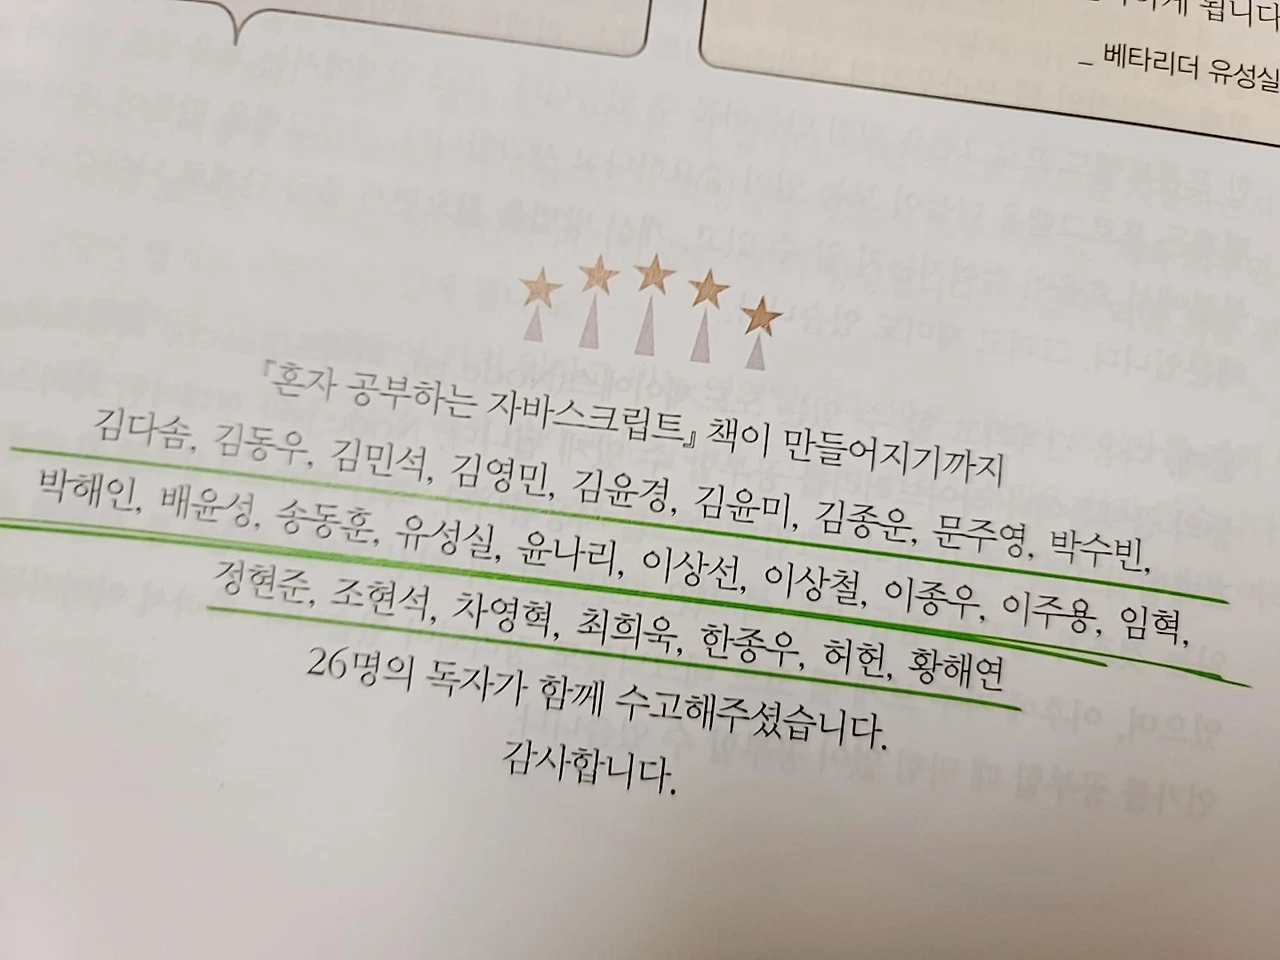 됩니다
_ 베타리더 유성실
『혼자 공부하는 자바스크립트』 책이 만들어지기까지
김다솜, 김동우, 김민석, 김영민, 김윤경, 김윤미, 김종운, 문주영, 박수빈,
박해인, 배윤성, 송동훈, 유성실, 윤나리, 이상선, 이상철, 이종우, 이주용, 임혁,
정현준, 조현석, 차영혁, 최희욱, 한종우, 허헌, 황해연
26명의 독자가 함께 수고해주셨습니다.
감사합니다.